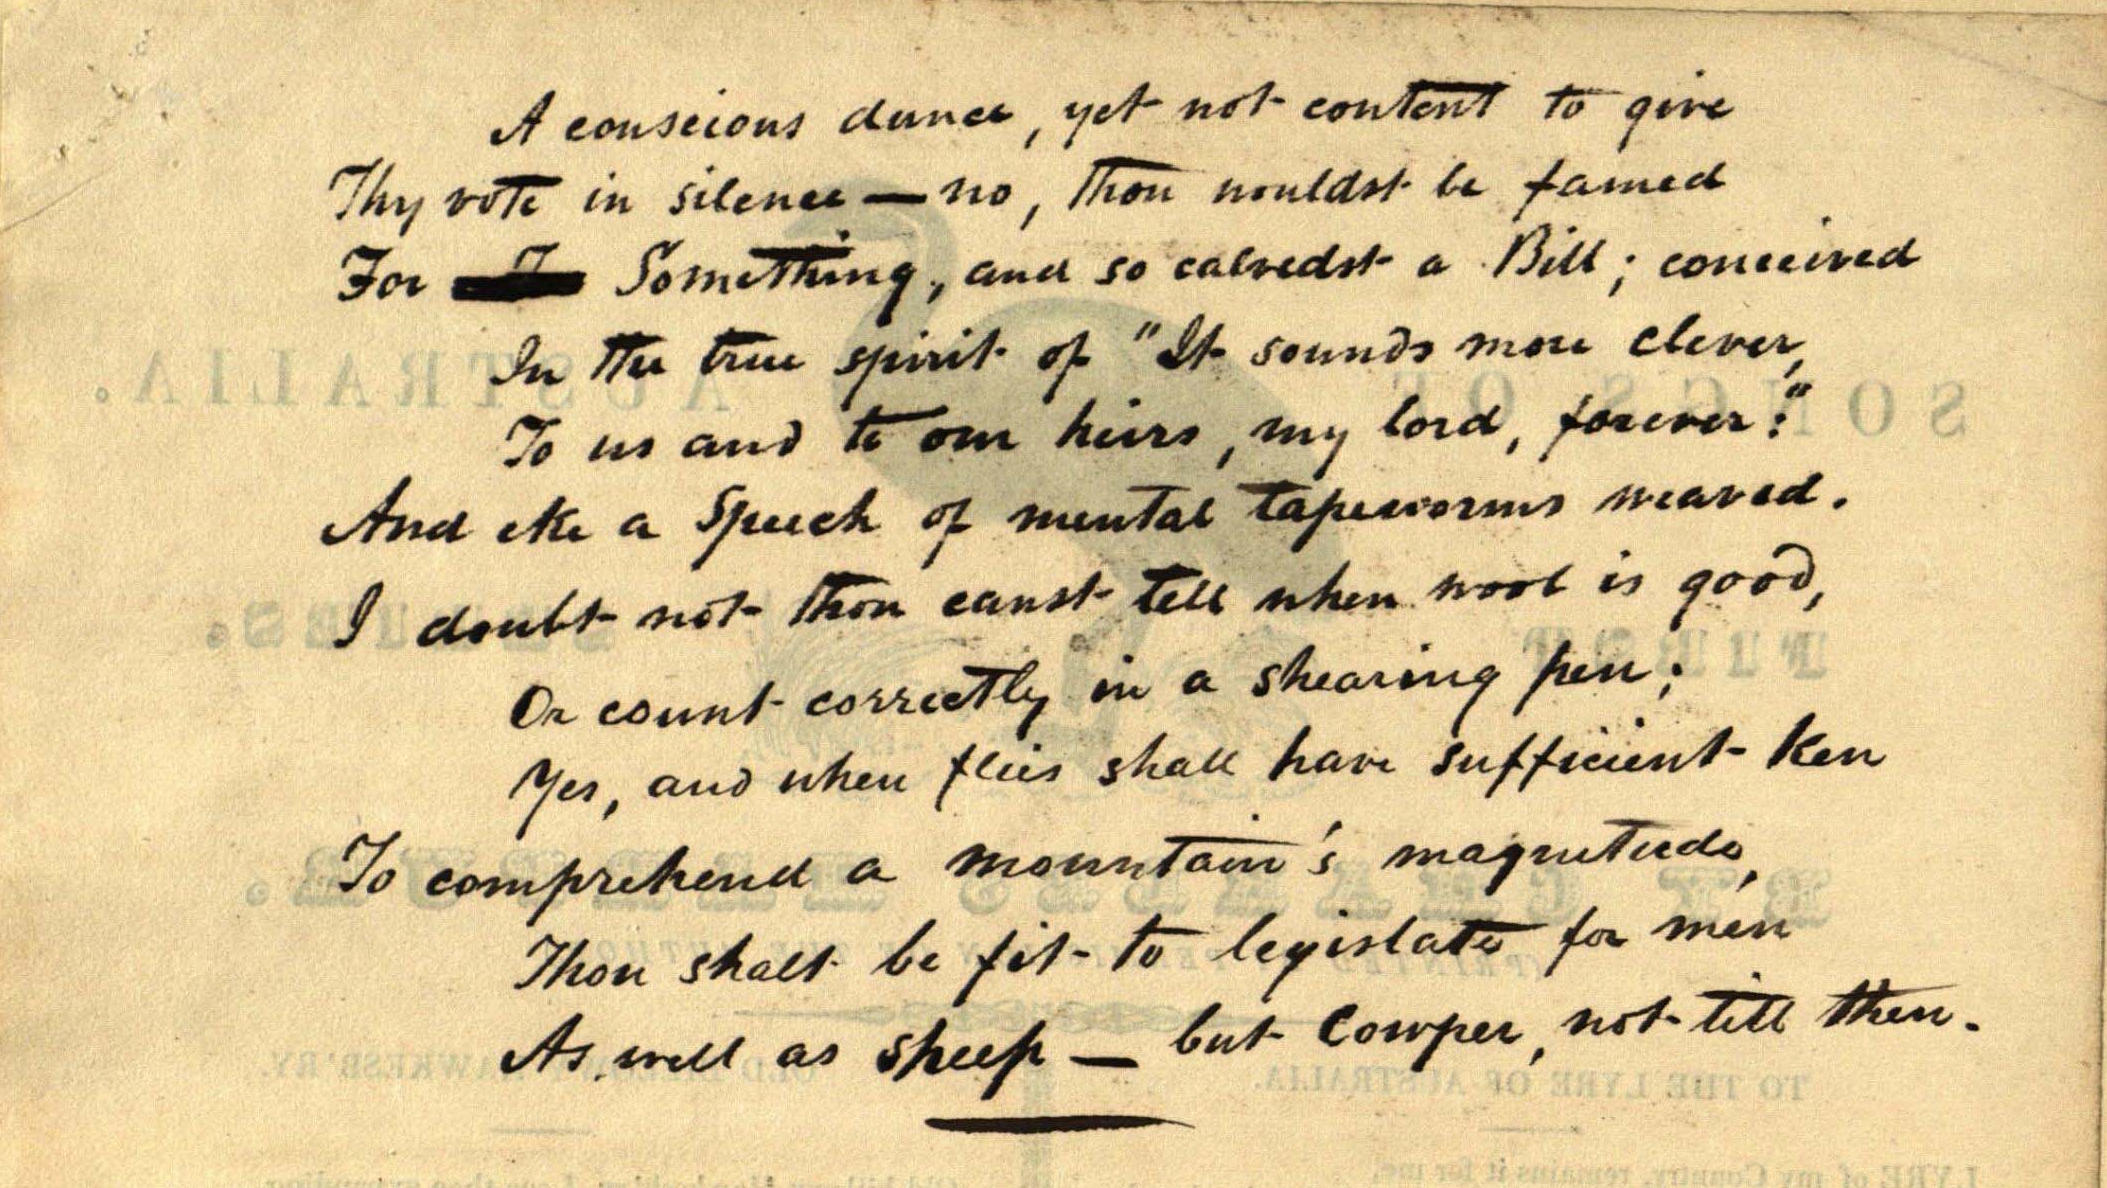 A conscious dunce, yet not content to give
Thy vote in silence — no, thou wouldst be famed
For Something, and so calvedst a Bill; conceived
In the true spirit of "It sounds more clever,
To us and to our heirs, my lord, forever:"
And eke a Speech of mental tapeworms weaved.
I doubt not thou canst tell when wool is good,
Or count correctly in a shearing pen;
Yes, and when flies shall have sufficient ken
To comprehend a mountain's magnitude,
Thou shalt be fit to legislate for men
As well as sheep — but Cowper, not till then.
SONGS OF AUSTRALIA.
FIRST SERIES.
BY CHARLES HARPUR.
TO THE LYRE OF AUSTRALIA.
LYRE of my Country, remains it for me,